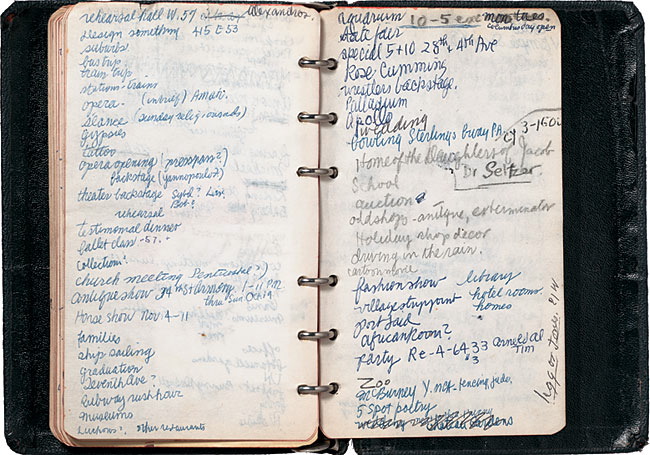 rehearsal hall W. 57 Alexandros.
design something 415 E 53
suburbs.
bus trip
train trip
stations-trains
opera. (in brief) Amati.
séance (sunday relig. ousads)
gypsies
tattoo
opera opening ( ?)
backstage (yannopoulos)
theater backstage
rehearsal
testimonial dinner
ballet class - 57.
Collections?
church meeting Pentecostal?)
antique show 34th St Armory 1-11 PM
thru Sun Oct 19
Horse show Nov. 4-11
families
ship sailing
graduation
seventh ave?
subway rush hour
museums
Luchows? other restaurants
aquarium 10-5 exc mon tues.
columbus day open
Auto fair
special 5+10 28th, 4th Ave
Rose Cumming
wrestlers backstage.
Palladium
Apollo
wedding
bowling Sterlings Bway PA.
CY 3-1500
Home of the Daughters of Jacob
Dr Seltzer
School
auctions
old shops - antique, exterminator
Holiday shop decor
driving in the rain.
cartoon movie
fashion show library
village stuyppoint hotel rooms
port said homes
african room?
party Re-4-6433
3 Tim
Zoo
McBurney Y. fencing, judo.
5 Spot poetry
wedding gardens